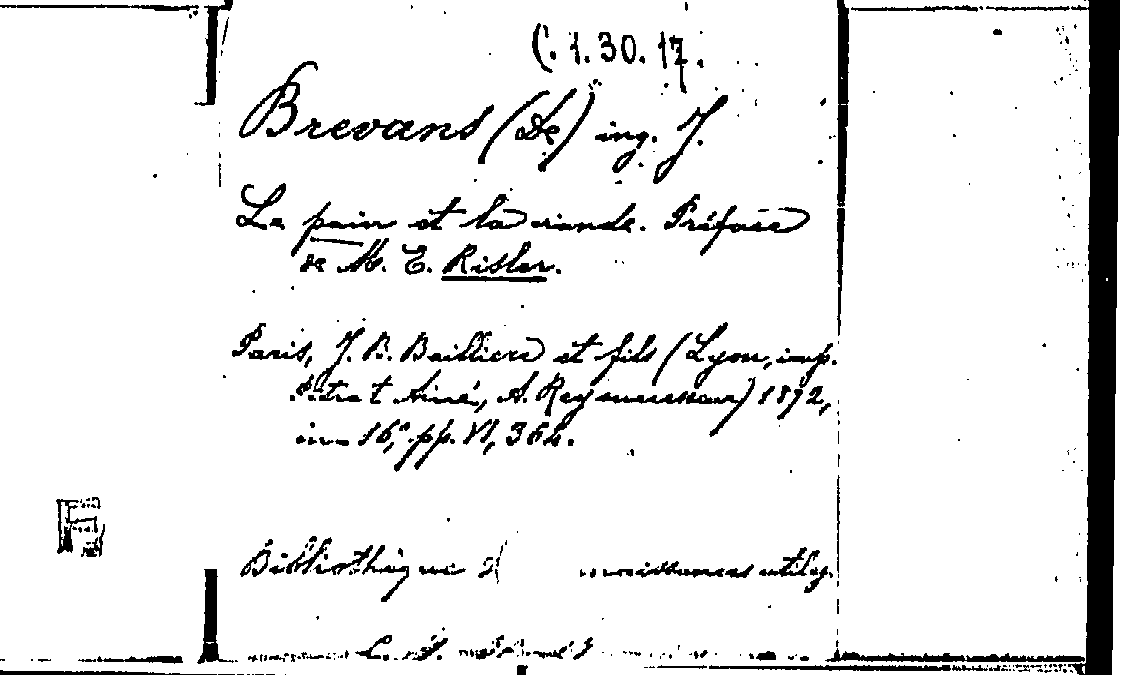 C. 1. 30. 17.
Brevans (de) ing. J.
Le pain et la viande. Préface
de M. E. Risler.
Paris, J. B. Baillière et fils (Lyon, imp.
Pitrat Ainé, A. Rey successeur) 1892,
in-16°, pp. VI, 364.
Bibliothèque d onnaissances utiles.